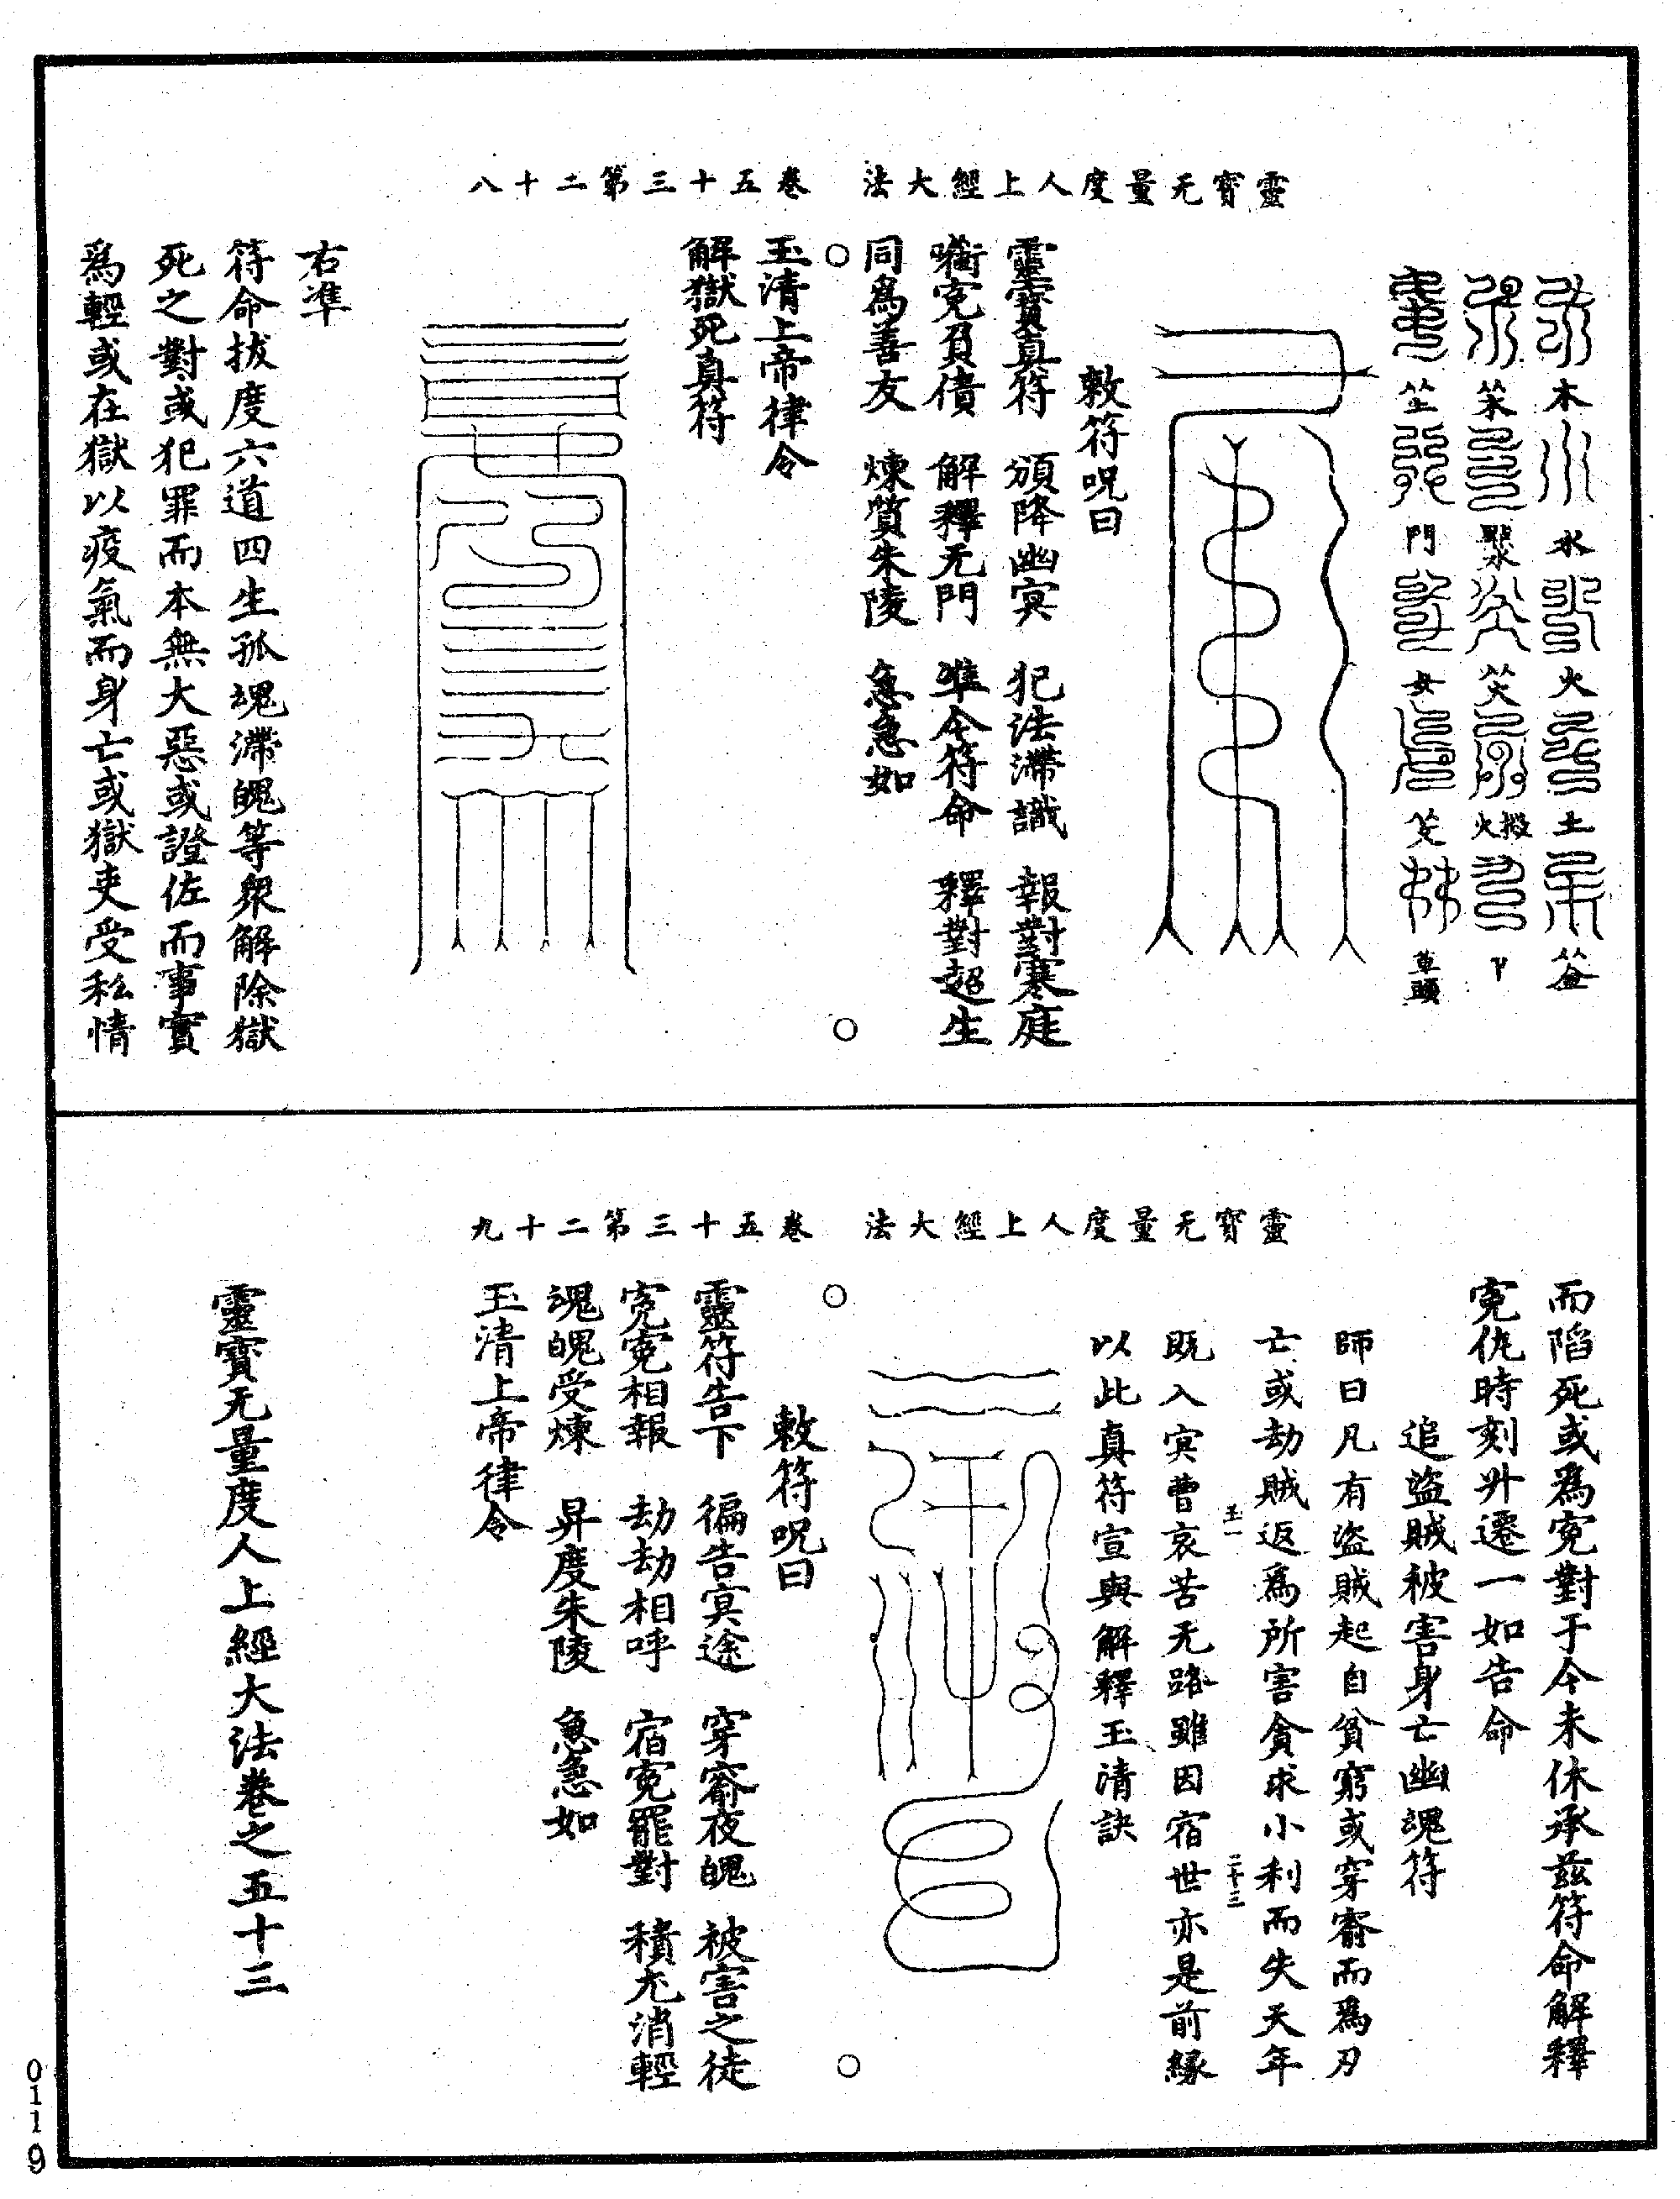 靈寶无量度人上經大法　卷五十三第二十八
木　水　火　土　釜
笨　漐　笑　火撥　𠂊
笁　門　女　笅　草頭
敕符呪曰
靈寶真符　頒降幽冥　犯法滯識　報對寒庭
噛寃負債　解釋无門　準令符命　釋對超生
同為善友　煉質朱陵　急急如
玉清上帝律令
解獄死真符
右準
符命拔度六道四生孤魂滯魄等衆解除獄
死之對或犯罪而本無大惡或證佐而事實
為輕或在獄以疫氣而身亡或獄吏受私情
靈寶无量度人上經大法　卷五十三第二十九
而陷死或為寃對于今未休承兹符命解釋
寃仇時刻升遷一如告命
追盜賊被害身亡幽魂符
師曰凡有盜賊起自貧窮或穿窬而為刃
亡或劫賊返為所害貪求小利而失天年
玉一　二十三
既入冥曹哀苦无路雖因宿世亦是前緣
以此真符宣與解釋玉清訣
敕符呪曰
靈符告下　徧告冥途　穿窬夜魄　被害之徒
寃寃相報　劫劫相呼　宿寃罷對　積尤消輕
魂魄受煉　昇度朱陵　急急如
玉清上帝律令
靈寶无量度人上經大法卷之五十三
0119